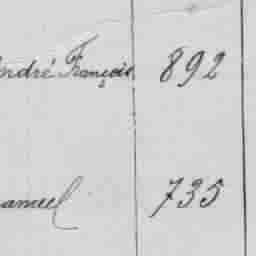 André François 892
amuel 735